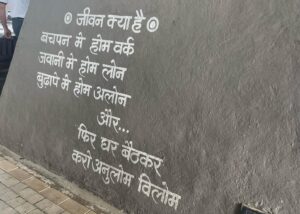 जीवन क्या है
बचपन मे होम वर्क
जवानी मे होम लोन
बुढापे मे होम अलोन
और...
फिर घर बैठकर
करो अनुलोम विलोम